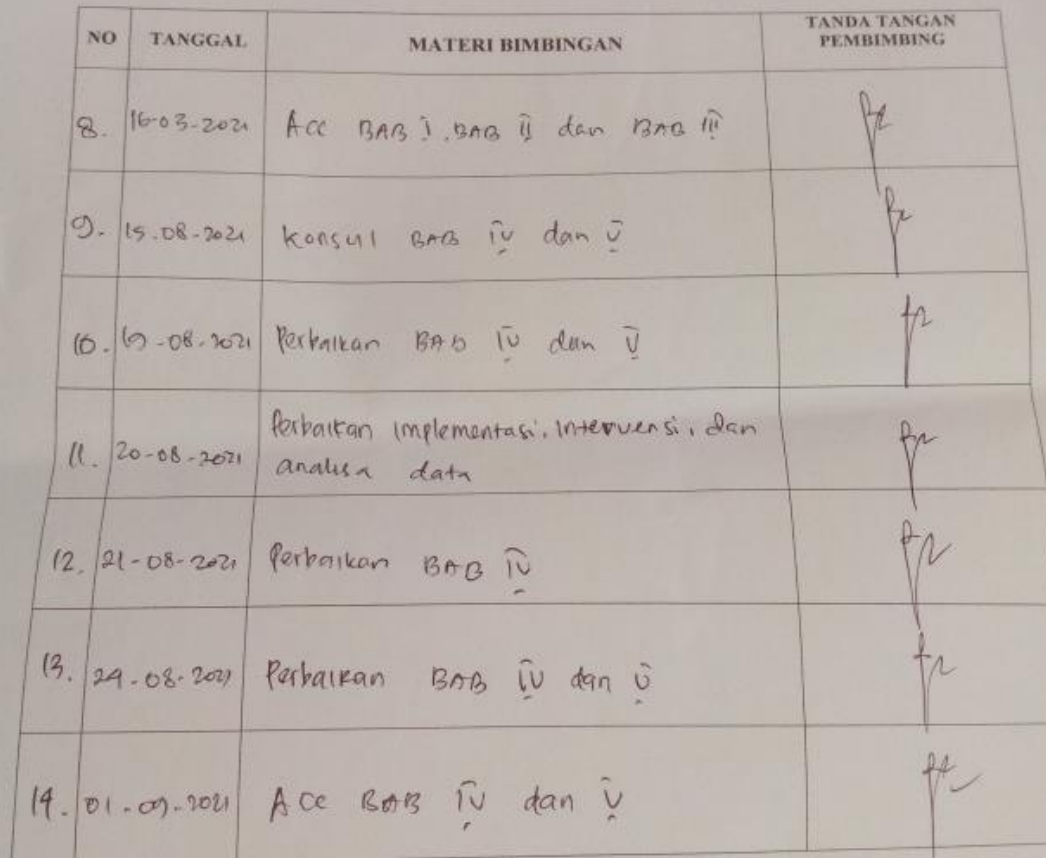 NO TANGGAL MATERI BIMBINGAN TANDA TANGAN
PEMBIMBING
8. 16-03-2021 Acc BAB I, BAB II dan BAB III
9. 15-08-2021 Konsul BAB IV dan V
10. 19-08-2021 Perbaikan BAB IV dan V
11. 20-08-2021 Perbaikan implementasi, intervensi, dan
analisa data
12. 21-08-2021 Perbaikan BAB IV
13. 24-08-2021 Perbaikan BAB IV dan V
14. 01-09-2021 Acc BAB IV dan V